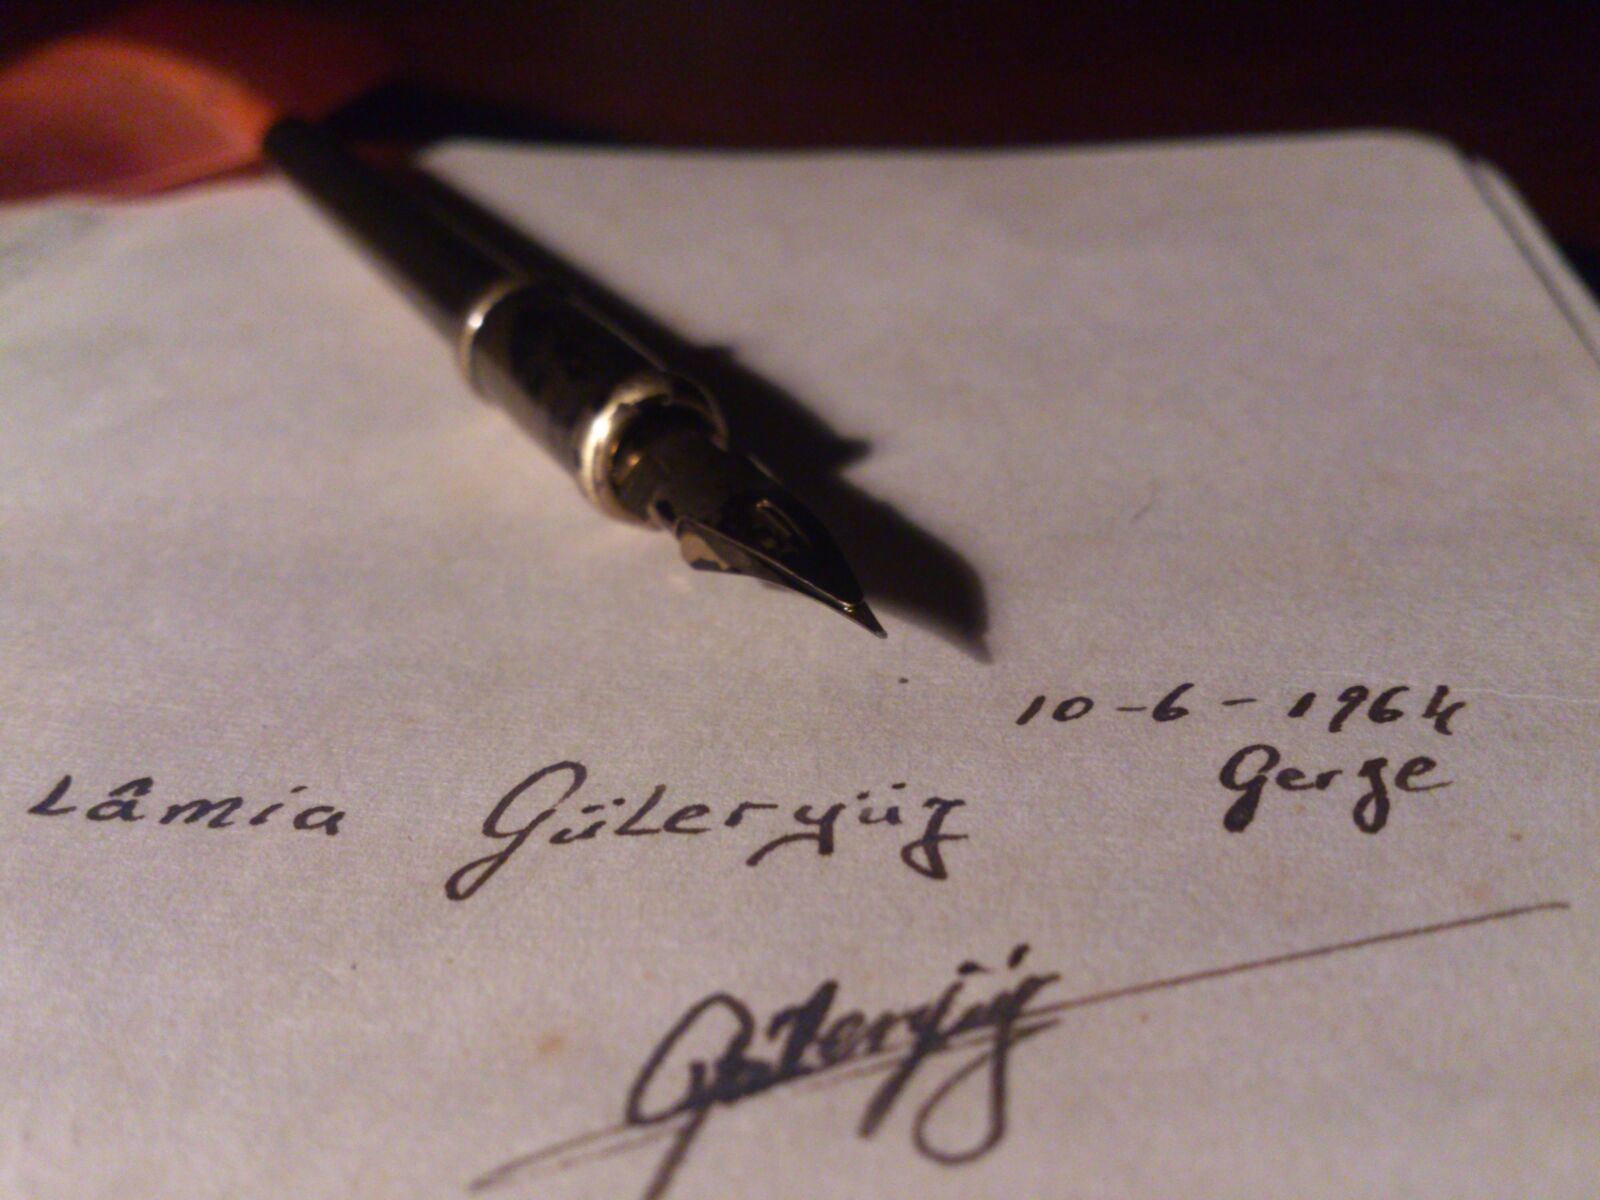 10-6-1964
Gerze
Lâmia Güleryüz
Güleryüz